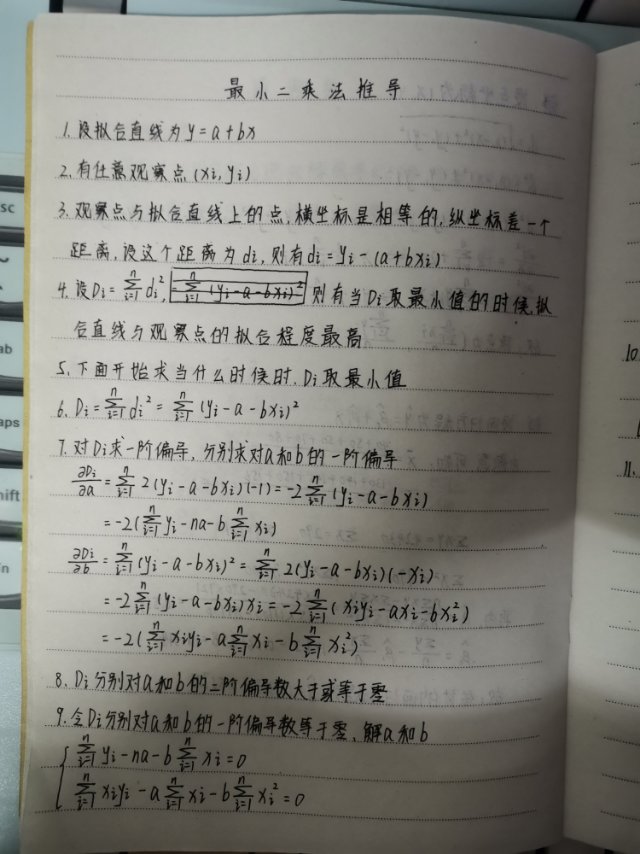 最小二乘法推导
1. 设拟合直线为 y=a+bx
2. 有任意观察点 (xi, yi)
3. 观察点与拟合直线上的点, 横坐标是相等的, 纵坐标差一个
距离, 设这个距离为 di, 则有 di=yi-(a+bxi)
4. 设Di=∑_{i=1}^{n} di², 则有当Di取最小值的时候, 拟
合直线与观察点的拟合程度最高
5. 下面开始求当什么时候时, Di取最小值
6. Di=∑_{i=1}^{n} di² = ∑_{i=1}^{n} (yi-a-bxi)²
7. 对Di求一阶偏导, 分别求对a和b的一阶偏导
∂Di/∂a = ∑_{i=1}^{n} 2(yi-a-bxi)(-1) = -2∑_{i=1}^{n} (yi-a-bxi)
= -2(∑_{i=1}^{n} yi-na-b∑_{i=1}^{n} xi)
∂Di/∂b = ∑_{i=1}^{n} (yi-a-bxi)² = ∑_{i=1}^{n} 2(yi-a-bxi)(-xi)
= -2∑_{i=1}^{n} (yi-a-bxi)xi = -2∑_{i=1}^{n} (xiyi-axi-bxi²)
= -2(∑_{i=1}^{n} xiyi-a∑_{i=1}^{n} xi-b∑_{i=1}^{n} xi²)
8. Di分别对a和b的二阶偏导数大于或等于零
9. 令Di分别对a和b的一阶偏导数等于零, 解a和b
∑_{i=1}^{n} yi-na-b∑_{i=1}^{n} xi=0
∑_{i=1}^{n} xiyi-a∑_{i=1}^{n} xi-b∑_{i=1}^{n} xi²=0
10.
11.